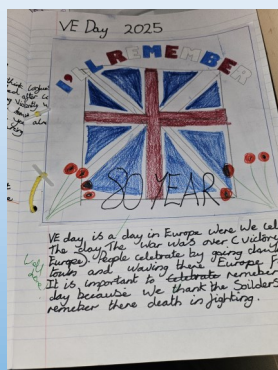 VE Day 2025
I'LL REMEMBER
80 YEAR
VE day is a day in Europe were we cel
The day. The war was over (victory
Europe). People celebrate by going down
tours and waving there Europe F
It is important to celebrate remeber
day because we thank the Soilders
remeber there death in fighting.